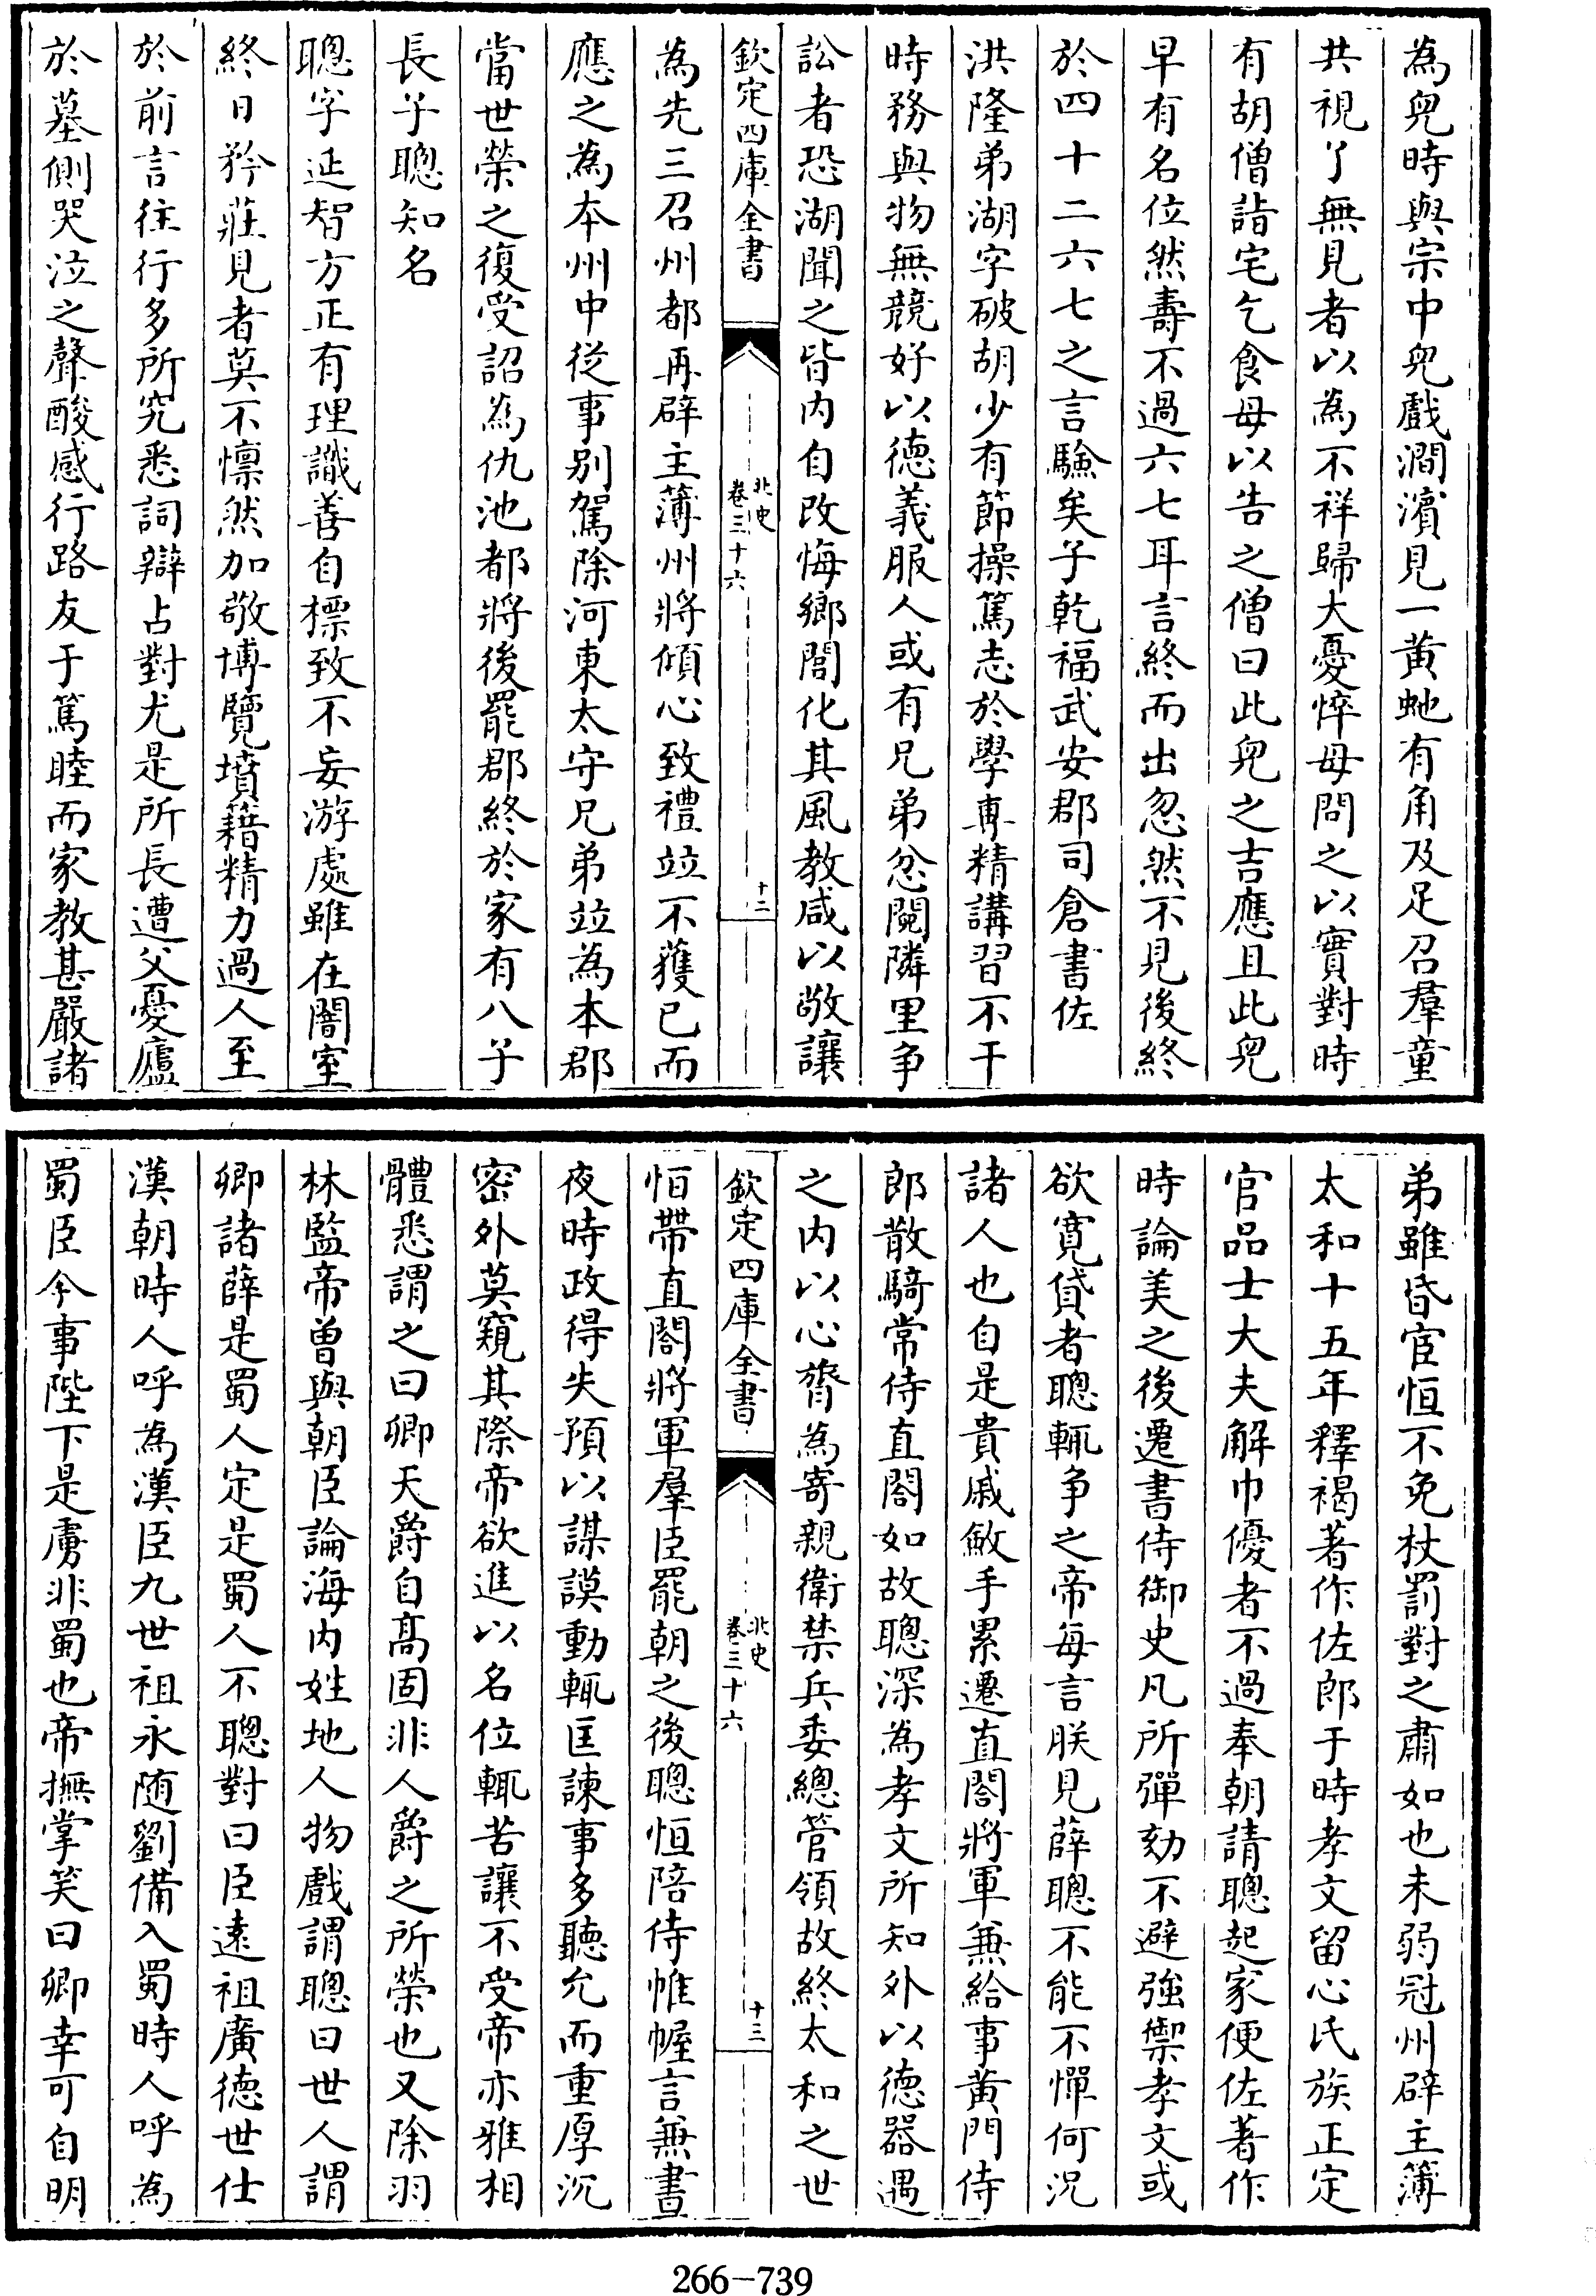 為兒時與宗中兒戲澗濱見一黃虵有角及足召羣童
共視了無見者以為不祥歸大憂悴母問之以實對時
有胡僧詣宅乞食母以告之僧曰此兒之吉應且此兒
早有名位然壽不過六七耳言終而出忽然不見後終
於四十二六七之言驗矣子乾福武安郡司倉書佐
洪隆弟湖字破胡少有節操篤志於學專精講習不干
時務與物無競好以德義服人或有兄弟忿鬩隣里争
訟者恐湖聞之皆内自改悔鄉閭化其風教咸以敬讓
欽定四庫全書
北史
卷三十六
十二
為先三召州都再辟主薄州將傾心致禮竝不獲已而
應之為本州中從事别駕除河東太守兄弟竝為本郡
當世榮之復受詔為仇池都將後罷郡終於家有八子
長子聰知名
聰字延智方正有理識善自標致不妄游處雖在闇室
終日矜莊見者莫不懍然加敬博覽墳籍精力過人至
於前言往行多所究悉詞辯占對尤是所長遭父憂廬
於墓側哭泣之聲酸感行路友于篤睦而家教甚嚴諸
弟雖昏宦恒不免杖罰對之肅如也未弱冠州辟主簿
太和十五年釋褐著作佐郎于時孝文留心氏族正定
官品士大夫解巾優者不過奉朝請聰起家便佐著作
時論美之後遷書侍御史凡所彈劾不避強禦孝文或
欲寛貸者聰輒争之帝每言朕見薛聰不能不憚何況
諸人也自是貴戚斂手累遷直閤將軍兼給事黃門侍
郎散騎常侍直閤如故聰深為孝文所知外以德器遇
之内以心膂為寄親衛禁兵委總管領故終太和之世
欽定四庫全書
北史
卷三十六
十三
恒帶直閤將軍羣臣罷朝之後聰恒陪侍帷幄言兼晝
夜時政得失預以謀謨動輒匡諫事多聽允而重厚沉
密外莫窺其際帝欲進以名位輒苦讓不受帝亦雅相
體悉謂之曰卿天爵自髙固非人爵之所榮也又除羽
林監帝曾與朝臣論海内姓地人物戲謂聰曰世人謂
卿諸薛是蜀人定是蜀人不聰對曰臣遠祖廣德世仕
漢朝時人呼為漢臣九世祖永随劉備入蜀時人呼為
蜀臣今事陛下是虜非蜀也帝撫掌笑曰卿幸可自明
266-739